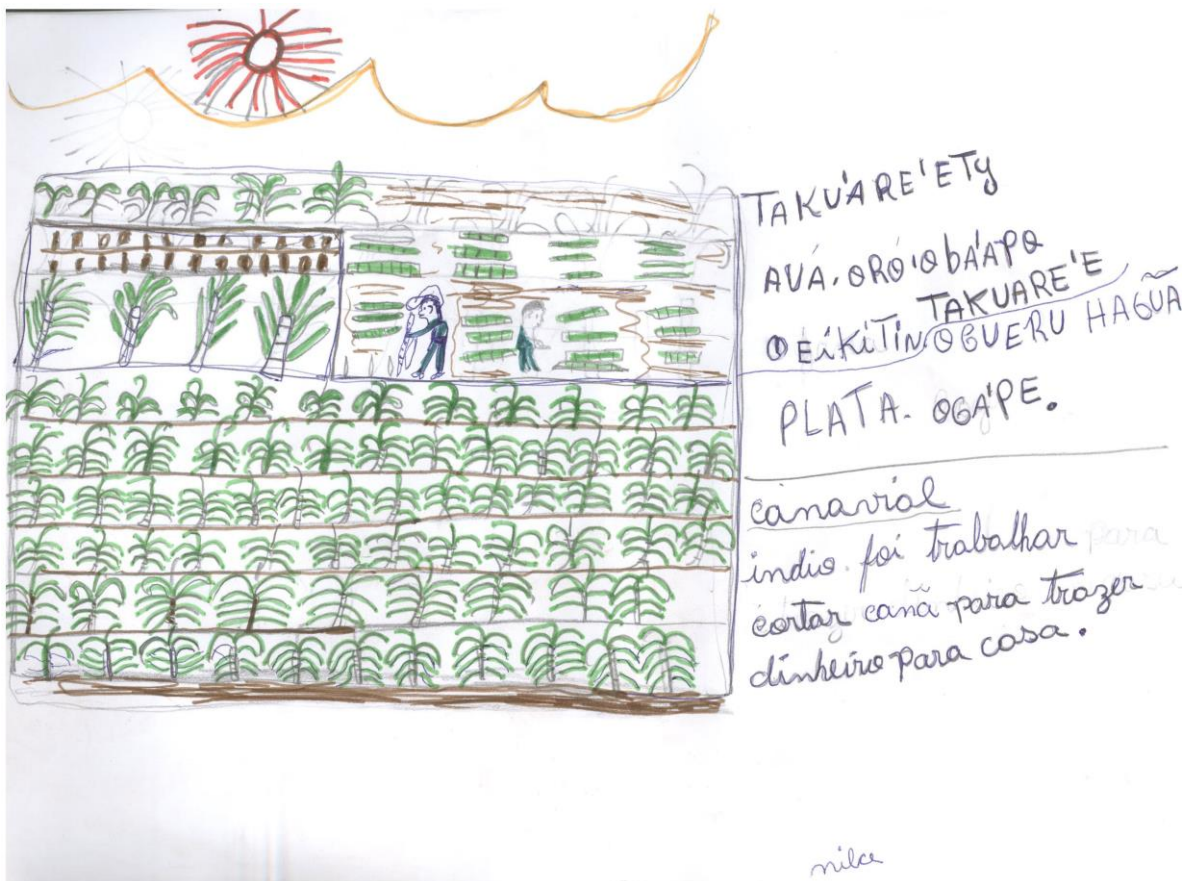 TAKUÁRE'ETY
AVÁ. ORÓ'OBÁAPO
TAKUARE'E
OEÍKÍTÍN OGUERU HAGUÃ
PLATA. OGA'PE.
canavial
indio. foi trabalhar
cortar canã para trazer
dinheiro para casa.
nilce